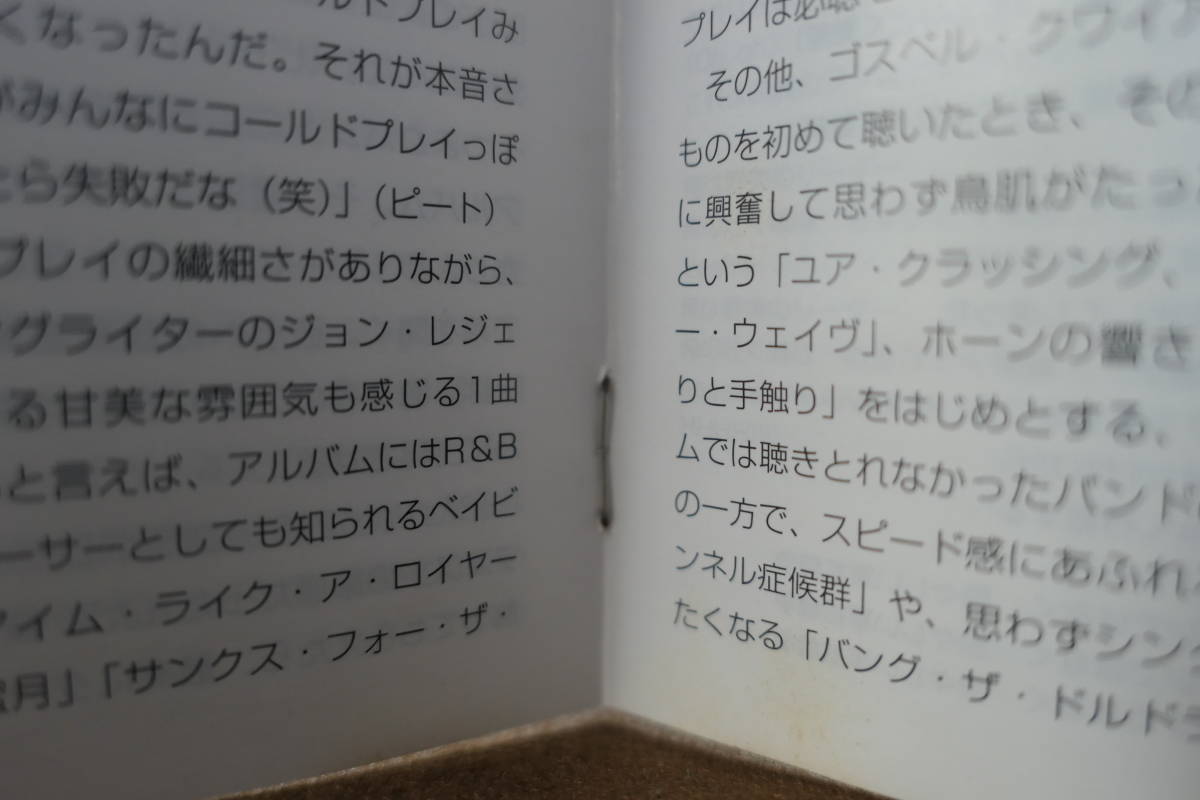 ルドプレイみ
くなったんだ。それが本音さ
がみんなにコールドプレイっぽ
たら失敗だな（笑）」（ピート）
プレイの繊細さがありながら、
ングライターのジョン・レジェ
る甘美な雰囲気も感じる1曲
と言えば、アルバムにはR&B
ーサーとしても知られるベイビ
アイム・ライク・ア・ロイヤー
蜜月」「サンクス・フォー・ザ・
プレイは必聴
その他、ゴスペル・クワイア
ものを初めて聴いたとき、その
に興奮して思わず鳥肌がたっ
という「ユア・クラッシング、
ー・ウェイヴ」、ホーンの響き
りと手触り」をはじめとする、
ムでは聴きとれなかったバンド
の一方で、スピード感にあふれ
ンネル症候群」や、思わずシング
たくなる「バング・ザ・ドルド